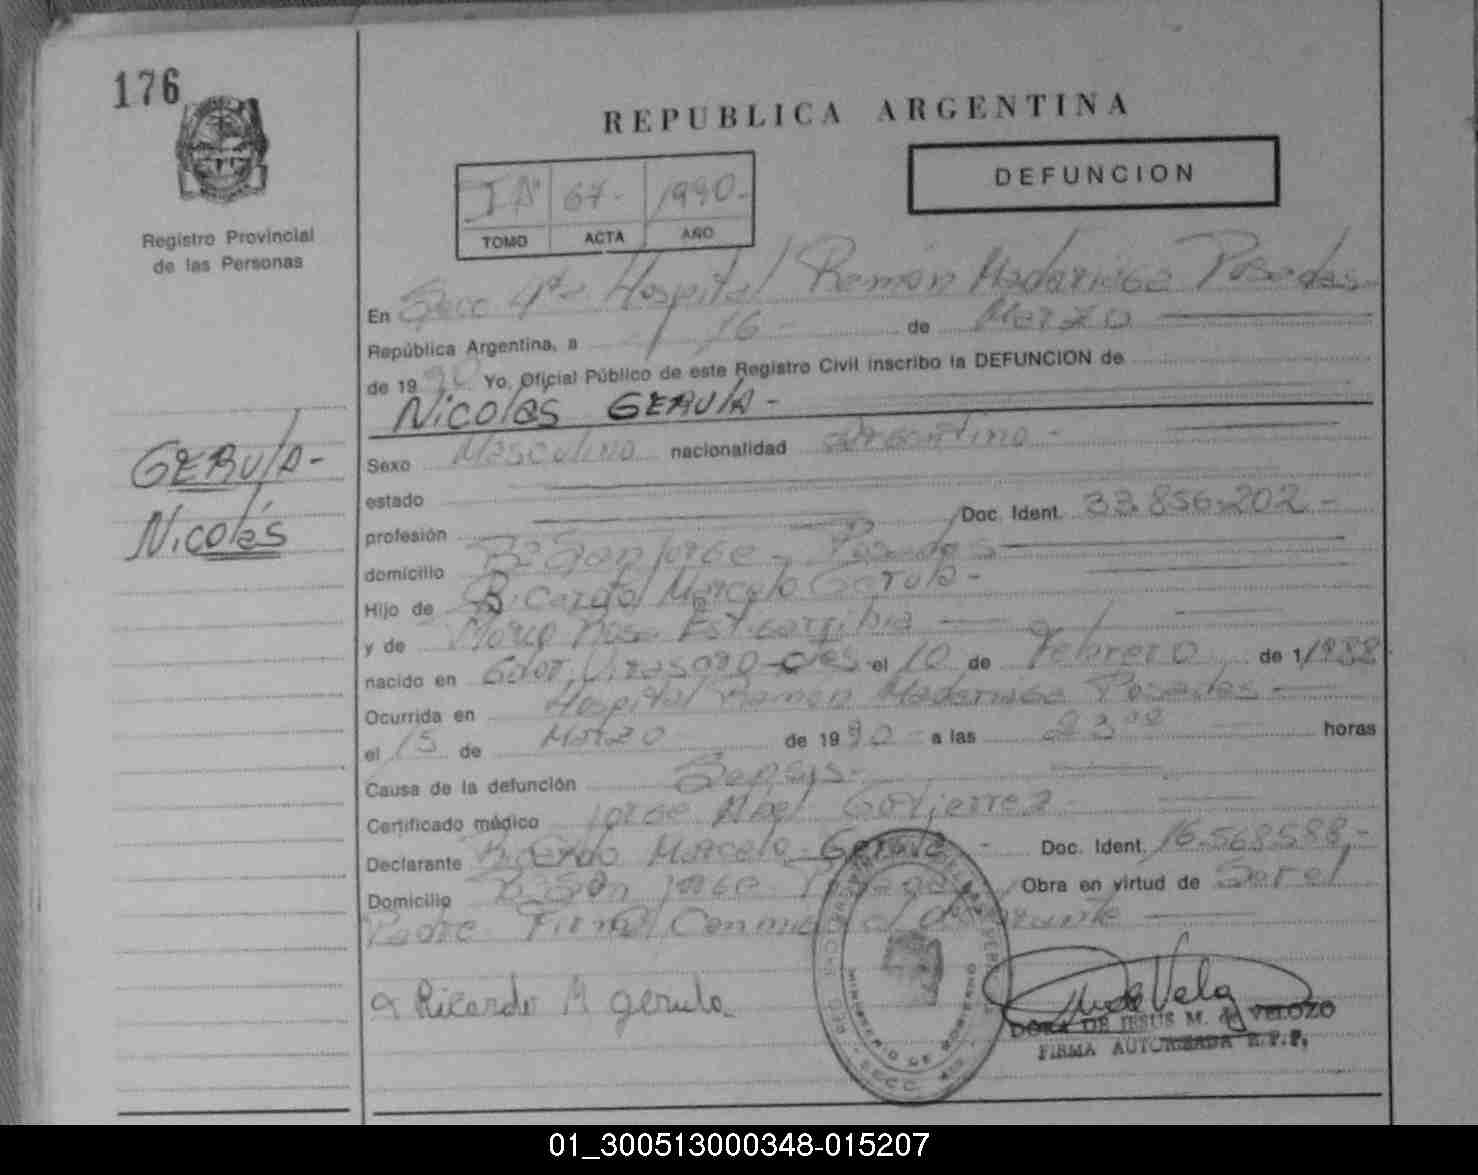 176
REPUBLICA ARGENTINA
DEFUNCION
67- 1990-
TOMO ACTA AÑO
Registro Provincial
de las Personas
En Secc 4ta Hospital Ramón Madariaga Posadas
República Argentina, a 16- de Marzo
de 1990 Yo, Oficial Público de este Registro Civil inscribo la DEFUNCION de
Nicolás GERULA-
GERULA-
Nicolás
Sexo Masculino nacionalidad Argentino-
estado
profesión Doc. Ident. 33.856.202-
domicilio Bº San Jorge - Posadas
Hijo de Ricardo Marcelo Gerula-
y de María Rosa Estigarribia
nacido en Gdor. Virasoro - Ctes el 10 de Febrero de 1/1988
Ocurrida en Hospital Ramón Madariaga Posadas-
el 15 de Marzo de 1990- a las horas
Causa de la defunción Sepsis-
Certificado médico Jorge Abel Gutierrez-
Declarante Ricardo Marcelo Gerula- Doc. Ident. 16.568.588,-
Domicilio Bº San Jorge Posadas Obra en virtud de Ser el
Padre Firma Conmigo el declarante
Ricardo M gerula
MINISTERIO DE GOBIERNO
DORA DE JESUS M. de VELOZO
FIRMA AUTORIZADA R.P.P.
01_300513000348-015207